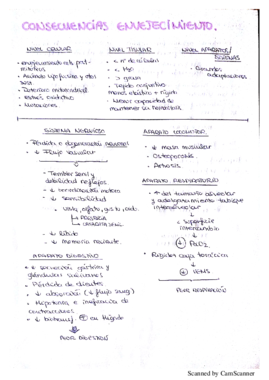 CONSECUENCIAS ENVEJECIMIENTO.
NIVEL CELULAR
• Acúmulo lipofucsina y otras
• Deterioro mitocondrial
• Estrés oxidativo
• Mutaciones
NIVEL TISULAR
• ↓ nº de células
• ↓ H2O
• > grasa
• Tejido conjuntivo
menos elástico + rígido
• Menor capacidad de
mantener la homeostasis
NIVEL APARATOS/
SISTEMAS
SISTEMA NERVIOSO
• Pérdida o degeneración neuronal
• ↓ Flujo sanguíneo
• Temblor senil y
debilidad reflejos
• ↓ coordinación motora
• ↓ sensibilidad
vista, olfato, gusto, oído
↳ PRESBICIA
• ↓ Líbido
• ↓ Memoria reciente.
APARATO LOCOMOTOR
• ↓ masa muscular
• Osteoporosis
• Artrosis
APARATO RESPIRATORIO
• + del tamaño alveolar
y adelgazamiento tabique
interalveolar
↓ superficie
intercambio
↓ PaO2
• Rigidez caja torácica
↓ VEMS
PEOR RESPIRACIÓN
APARATO DIGESTIVO
• ↓ secreción gástrica y
glándulas salivares
• Pérdida de dientes
• ↓ absorción (↓ flujo sang)
• Hipotonía e ineficacia de
contracciones
PEOR DIGESTIÓN
Scanned by CamScanner